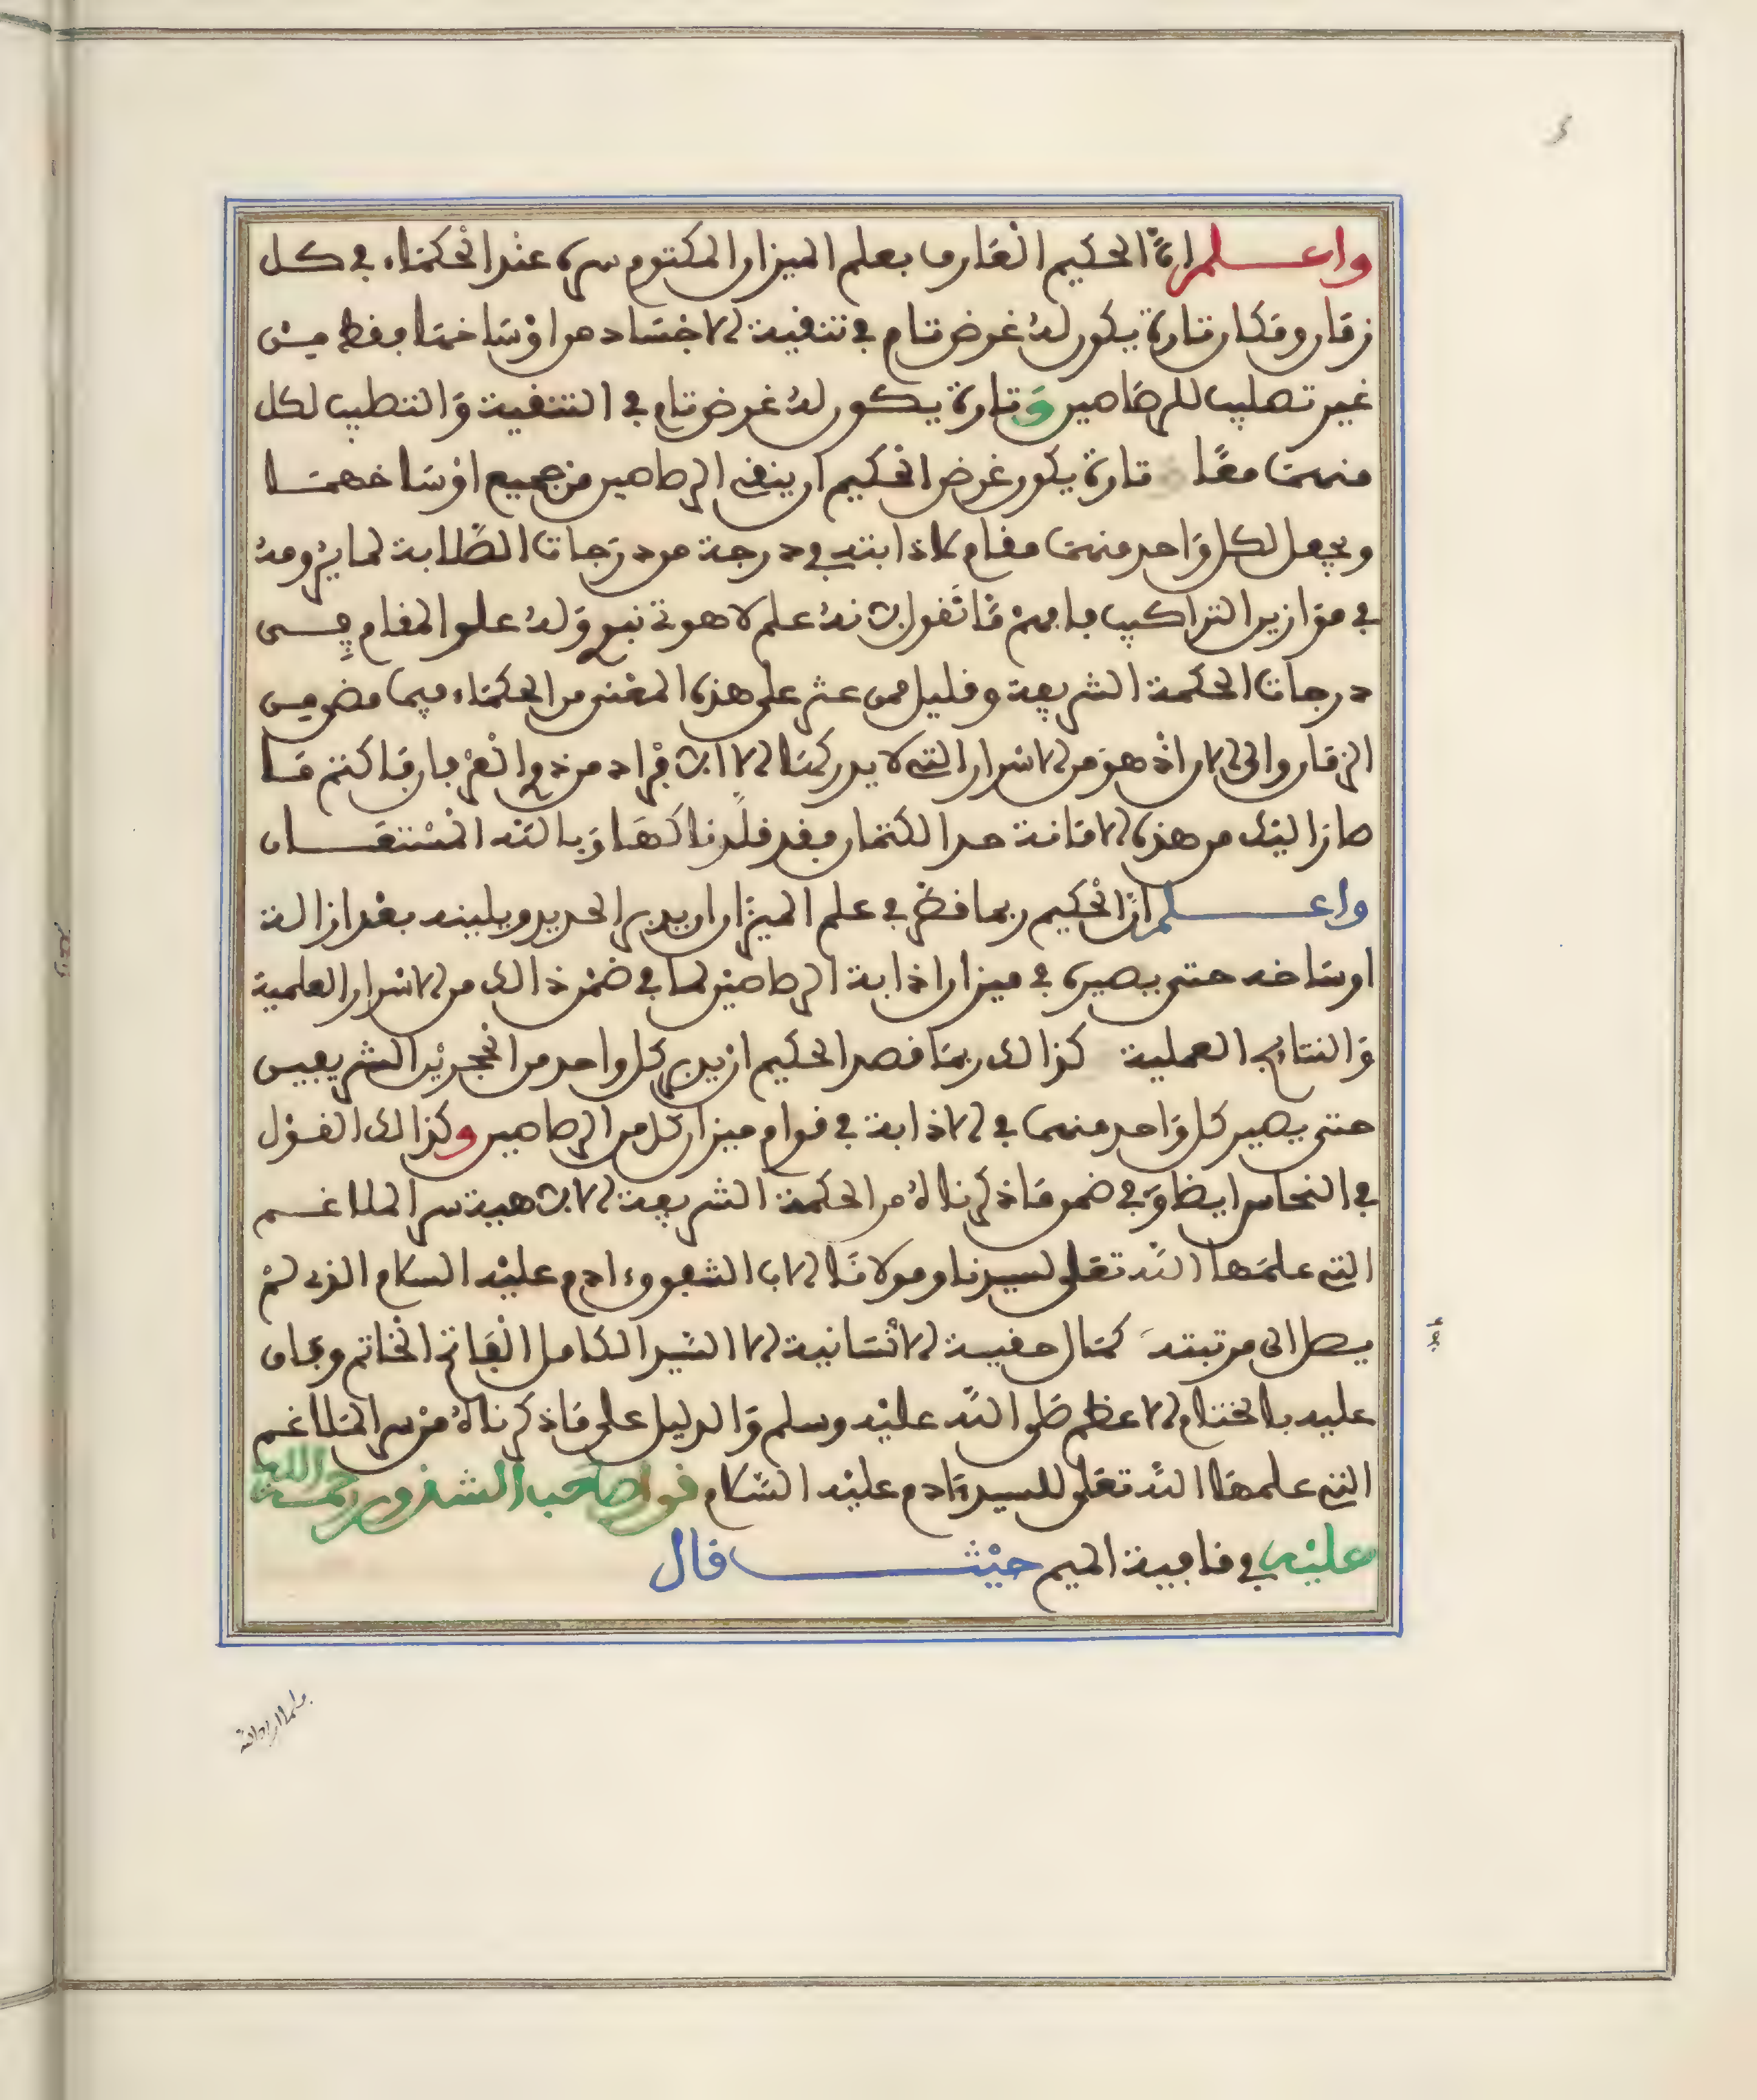 واعلم ان الحكيم العارف بعلم الميزان المكتوم سره عند الحكماء في كل
زمان ومكان تارة يكون له غرض تام في تنقية الاجساد من اوساخها فقط من
غير تصليب للرصاصين وتارة يكون له غرض تام في التنقية والتطيب لكل
منهما معا تارة يكون غرض الحكيم ان ينقي الرصاصين من جميع اوساخهما
ويجعل لكل واحد منهما مقام لاذابته في درجة من درجات الصلابة لما يرومه
في موازين التراكيب فافهم ما نقول فانه علم لاهوتي نبوي وله علو المقام في
درجات الحكمة الشريفة وقليل ممن عثر على هذه المعنى من الحكماء فيما مضى من
الزمان والى الان اذ هو من الاسرار التي لا يدركها الا افراد من ذوي العرفان فاكتم ما
صار اليك من هذه الامانة حد الكتمان فقد قلدناكها وبالله المستعان
واعلم ان الحكيم ربما قصد في علم الميزان ان يدبر الحديد ويلينه بعد ازالة
اوساخه حتى يصيره في ميزان اذابة الرصاصين لما في ضمن ذالك من الاسرار العلمية
والنتايج العملية كذالك ربما قصد الحكيم ان يدبر كل واحد من الحجرين الشريفين
حتى يصير كل واحد منهما في الاذابة في قوام ميزان كل من الرصاصين وكذالك القول
في النحاس ايضا وفي ضمن ما ذكرناه من الحكمة الشريفة الالاهية سر الملاغم
التي علمها الله تعلى لسيدنا ومولانا الاب الشفوق ءادم عليه السلام الذي لم
يصل الى مرتبته كمال حقيقة الانسانية الا السيد الكامل الفاتح الخاتم
عليه بالختام الاعظم صلى الله عليه وسلم والدليل على ما ذكرناه من سر الملاغم
التي علمها الله تعلى للسيد ءادم عليه السلام قول صاحب الشذور رحمة الله
عليه في قافية الميم حيث قال